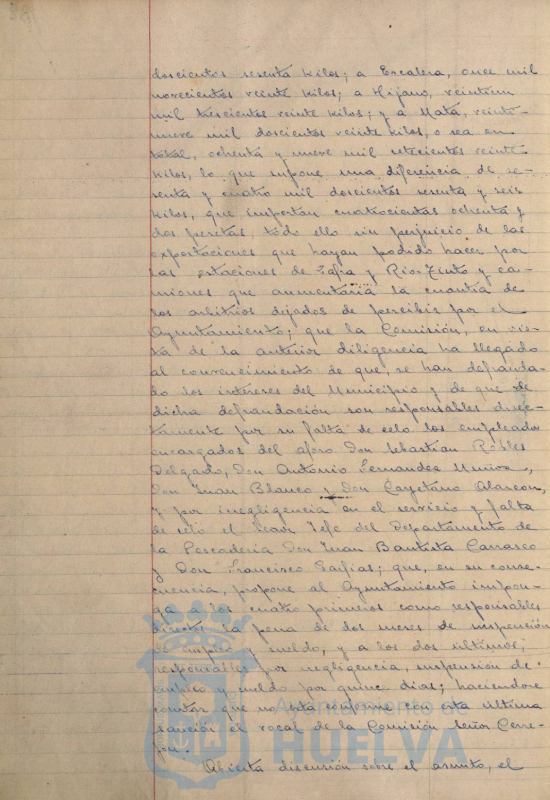 doscientos sesenta kilos; a Escalera, once mil
novecientos veinte kilos; a Hijano, veintiun
mil trescientos veinte kilos; y a Mata, veinti-
nueve mil doscientos veinte kilos, o sea en
total, ochenta y nueve mil setecientos veinte
kilos, lo que supone una diferencia de se-
senta y cuatro mil doscientos sesenta y seis
kilos, que importan cuatrocientas ochenta y
dos pesetas, todo ello sin perjuicio de las
exportaciones que hayan podido hacer por
las estaciones de Zafra y Rio-Tinto y ca-
miones que aumentaria la cuantia de
los arbitrios dejados de percibir por el
Ayuntamiento; que la Comisión, en vis-
ta de la anterior diligencia ha llegado
al convencimiento de que, se han defrauda-
do los intereses del Municipio y de que de
dicha defraudación son responsables direc-
tamente por su falta de celo los empleados
encargados del aforo Don Sebastian Robles
Delgado, Don Antonio Fernandez Muñoz,
Don Juan Blanco y Don Cayetano Alarcon,
y por inegligencia en el servicio y falta
de celo el Señor Jefe del Departamento de
la Pescaderia Don Juan Bautista Carrasco
y Don Francisco Saifias; que, en su conse-
cuencia, propone al Ayuntamiento impon-
ga a los cuatro primeros como responsables
directos la pena de dos meses de suspensión
de empleo y sueldo, y a los dos ultimos,
responsables por negligencia, suspension de
empleo y sueldo por quince dias; haciendose
constar que no está conforme con esta ultima
sanción el vocal de la Comisión Señor Cerre-
jon.
Abierta discusión sobre el asunto, el
Ayuntamiento de
HUELVA